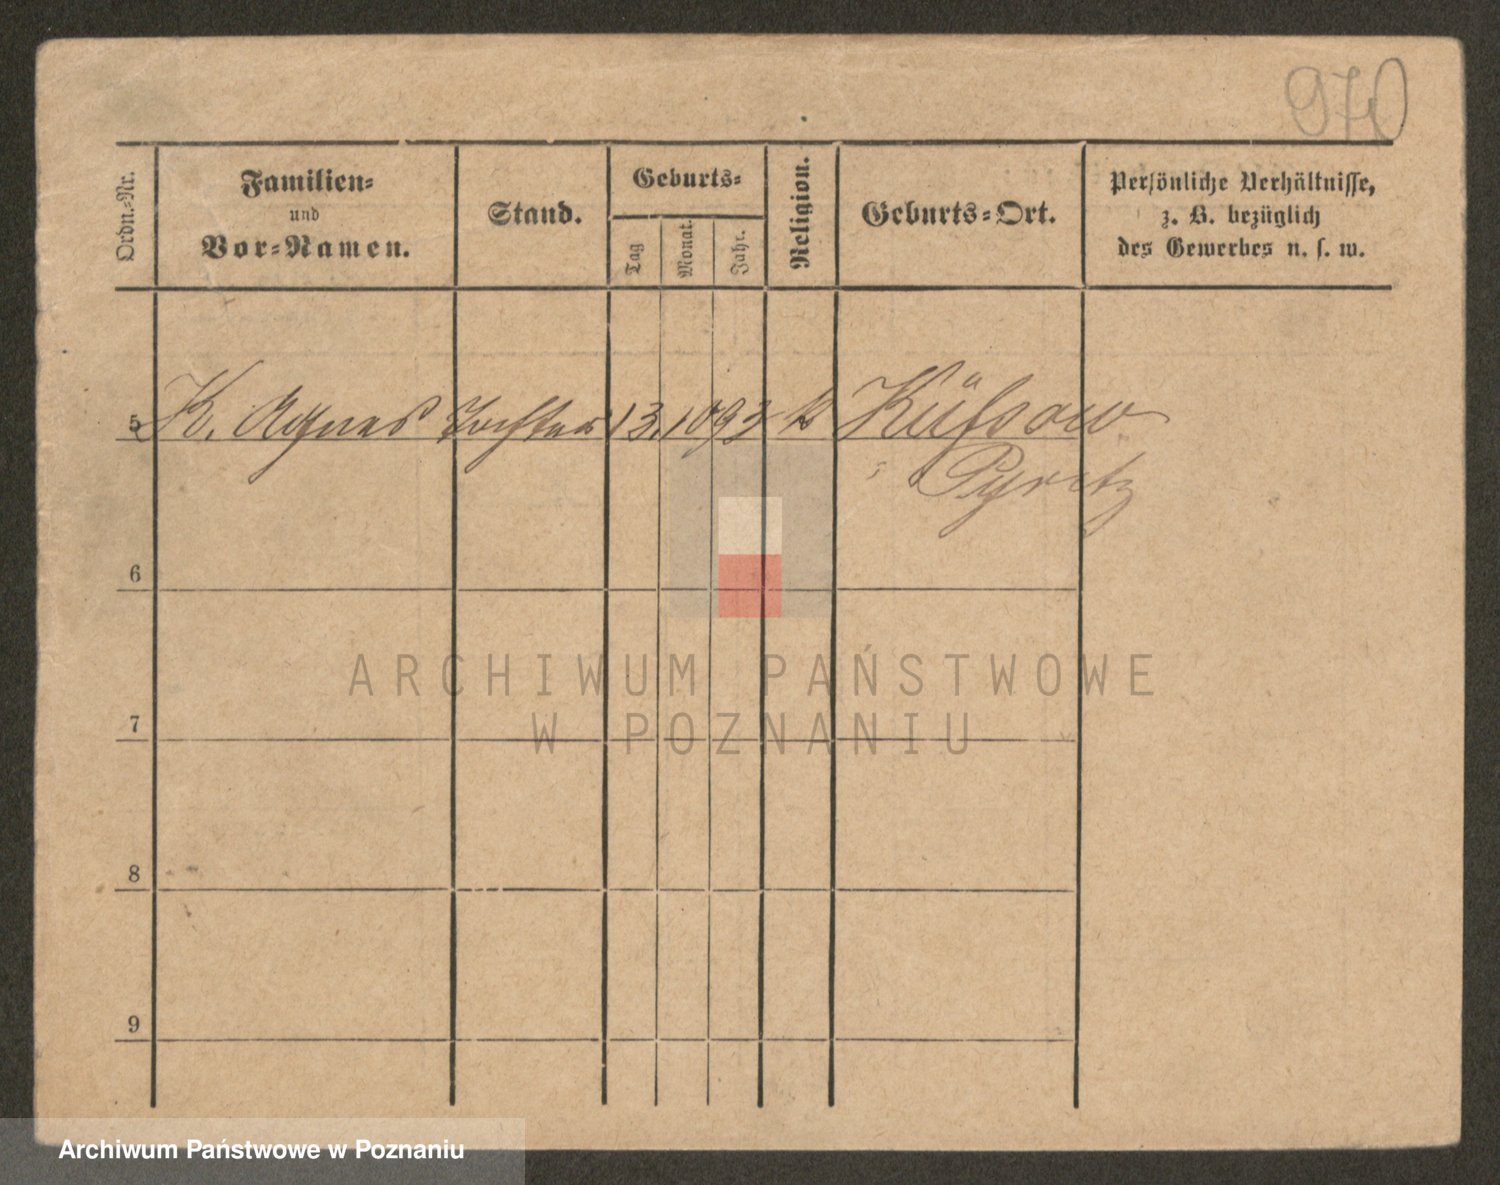 970
Ordn.-Nr.
Familien-
und
Vor-Namen.
Stand.
Geburts-
Tag
Monat.
Jahr.
Religion.
Geburts-Ort.
Persönliche Verhältnisse,
z. B. bezüglich
des Gewerbes u. s. w.
5 K. Agnes Tochter 13. 10 93 k
Pyritz
6
7
8
9
ARCHIWUM PAŃSTWOWE
W POZNANIU
Archiwum Państwowe w Poznaniu